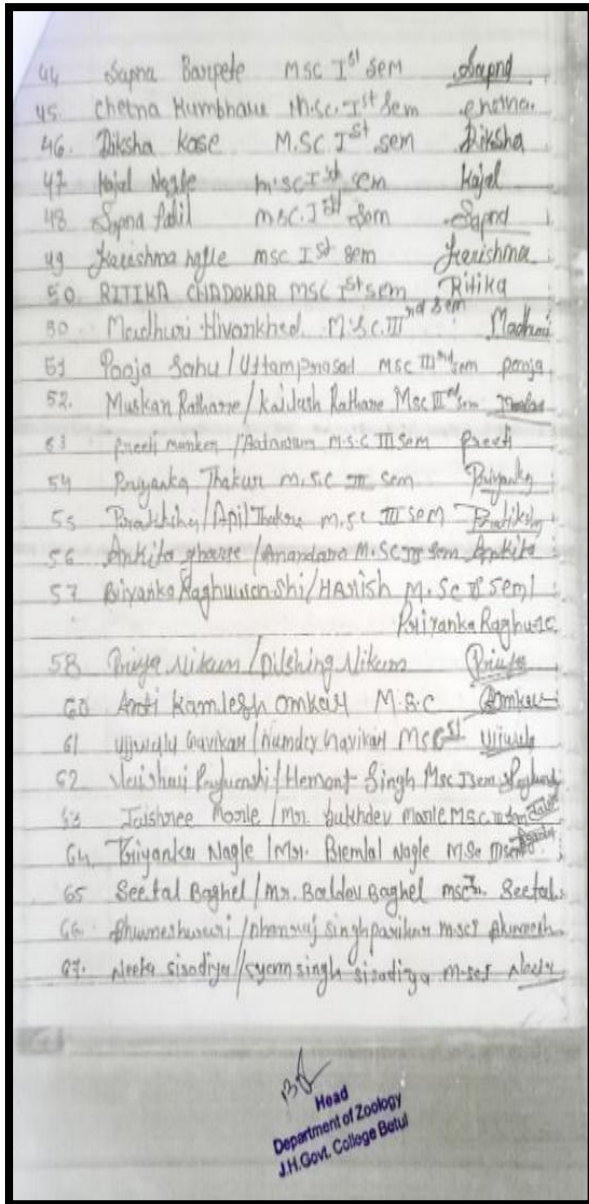 44 Sapna Barpete MSC Ist Sem Sapna
45. Chetna Kumbhare M.Sc. Ist Sem Chetna.
46. Diksha Kose M.SC Ist sem Diksha
47 Kajal Nagle M.SC Ist sem Kajal
48 Sapna Patil MSC. Ist Sem Sapna
49 Karishma MSC Ist Sem Karishma
50. RITIKA CHADOKAR MSC Ist sem Ritika
30 Madhuri Hivarkhed M.Sc. III rd Sem Madhuri
51 Pooja Sahu / Uttamprasad MSC III rd sem pooja
52. Muskan Rathore / Kailash Rathore Msc III rd sem
53 Preeti / M.S.C III Sem Preeti
54 Priyanka Thakur M.SC III sem Priyanka
55 Pratiksha / Thakre M.SC III sem Pratiksha
56 Ankita / M.SC III sem Ankita
57 Priyanka Raghuwanshi / Harish M.Sc Sem
Priyanka Raghu
58 Priya Nikum / Dilshing Nikum Priya
60 Arti Kamlesh Omkar M.S.C Omkar
61 Gavikar / Namdev Gavikar MSC Ist
62 / Hemant Singh Msc I sem
63 Jaishree / Mr. Sukhdev MSC
64 Priyanka Nagle / Mr. Premlal Nagle MSc
65 Seetal Baghel / Mr. Baldev Baghel MSC Seetal
66 Bhuneshwari / Dhanraj singh parihar M.SC I
67. Neeta sisodiya / Syam singh sisodiya M.SC I Neeta
Head
Department of Zoology
J.H.Govt. College Betul